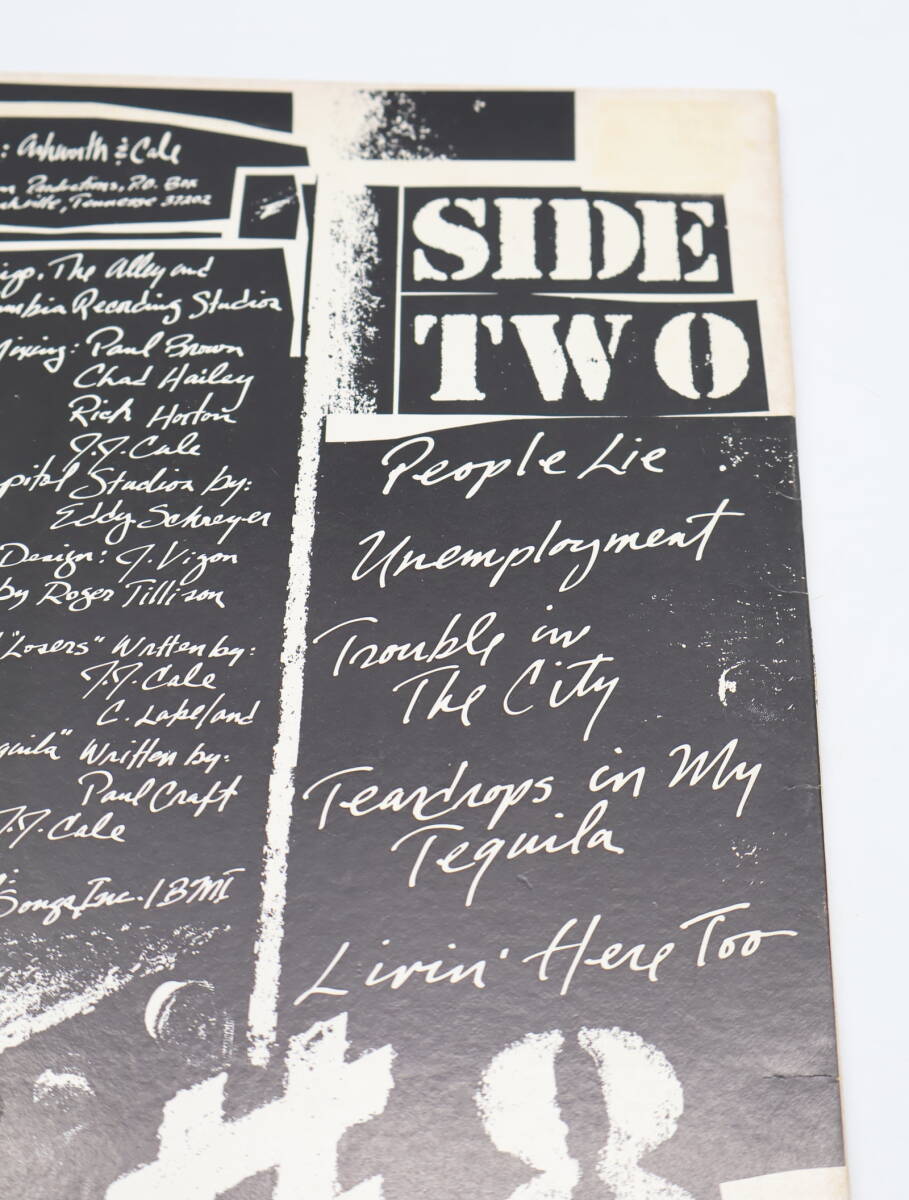 : Ashworth & Cale
Productions, P.O. Box
Tennessee 37202
The Alley and
Recording Studios
Mixing: Paul Brown
Chad Hailey
Rick Horton
J.J. Cale
Studios by:
Eddy Schreyer
Design: J. Vigon
by Roger Tillison
"Losers" Written by:
J.J. Cale
C. Lakeland
Written by:
Paul Craft
J.J. Cale
Songs, Inc. / BMI
SIDE
TWO
People Lie
Unemployment
Trouble in
The City
Teardrops in My
Tequila
Livin' Here Too
#8